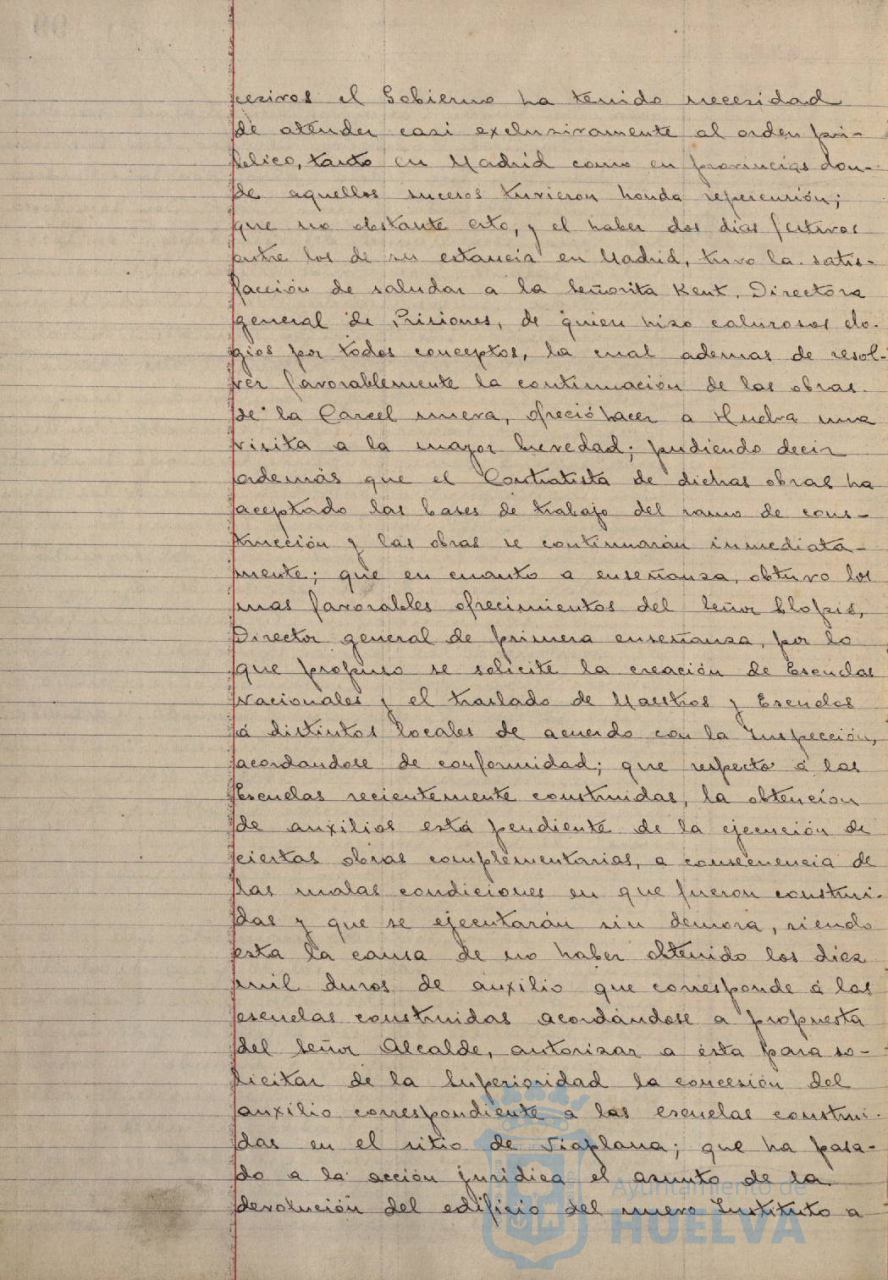 cesivos el Gobierno ha tenido necesidad
de atender casi exclusivamente al orden pú-
blico, tanto en Madrid como en provincias don-
de aquellos sucesos tuvieron honda repercusión;
que no obstante esto, y el haber dos dias festivos
entre los de su estancia en Madrid, tuvo la satis-
facción de saludar a la Señorita Kent, Directora
general de Prisiones, de quien hizo calurosos elo-
gios por todos conceptos, la cual ademas de resol-
ver favorablemente la continuación de las obras
de la Carcel nueva, ofreció hacer a Huelva una
visita a la mayor brevedad; pudiendo decir
ademas que el Contratista de dichas obras ha
aceptado las bases de trabajo del ramo de cons-
trucción y las obras se continuarán inmediata-
mente; que en cuanto a enseñanza, obtuvo los
mas favorables ofrecimientos del Señor Llopis,
Director general de primera enseñanza, por lo
que propuso se solicite la creación de Escuelas
Nacionales y el traslado de Maestros y Escuelas
á distintos locales de acuerdo con la Inspección,
acordandose de conformidad; que respecto á las
Escuelas recientemente construidas, la obtencion
de auxilios está pendiente de la ejecución de
ciertas obras complementarias, a consecuencia de
las malas condiciones en que fueron construi-
das y que se ejecutarán sin demora, siendo
esta la causa de no haber obtenido los diez
mil duros de auxilio que corresponde á las
escuelas construidas acordándose a propuesta
del Señor Alcalde, autorizar a ésta para so-
licitar de la Superioridad la concesión del
auxilio correspondiente a las escuelas construi-
das en el sitio de Viaplana; que ha pasa-
do a la acción juridica el asunto de la
devolución del edificio del nuevo Instituto a
Ayuntamiento de
HUELVA